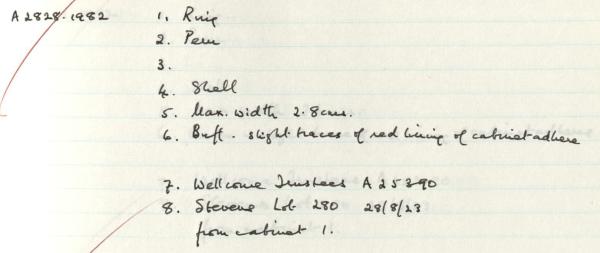 A2828.1982 1. Ring
2. Peru
3.
4. Shell
5. Max. width 2.8cms.
6. Buff. slight traces of red lining of cabinet adhere
7. Wellcome Trustees A 25390
8. Stevens Lot 280 28/8/23
from cabinet 1.